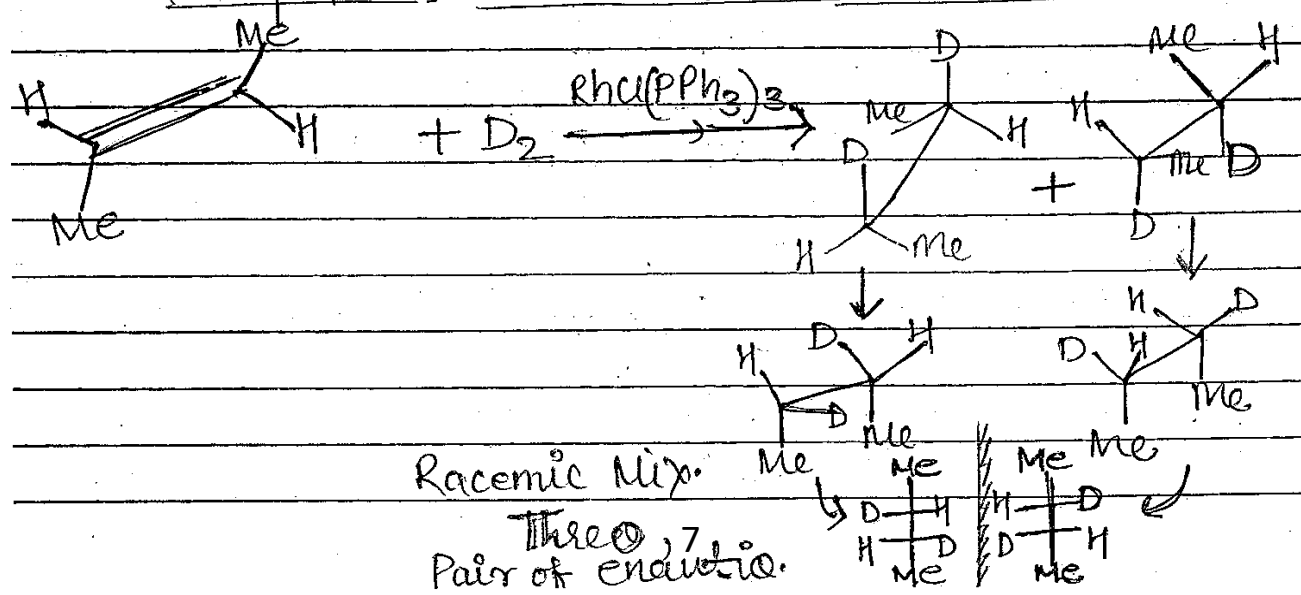 Me
H
H
Me
+ D2
RhCl(PPh3)3
D
Me
H
D
H
Me
+
Me
H
H
Me
D
D
H
D
H
D
Me
Me
H
D
D
H
Me
Me
Racemic Mix.
Threo, 7
Pair of enantio.
Me
D
H
H
D
Me
Me
H
D
D
H
Me